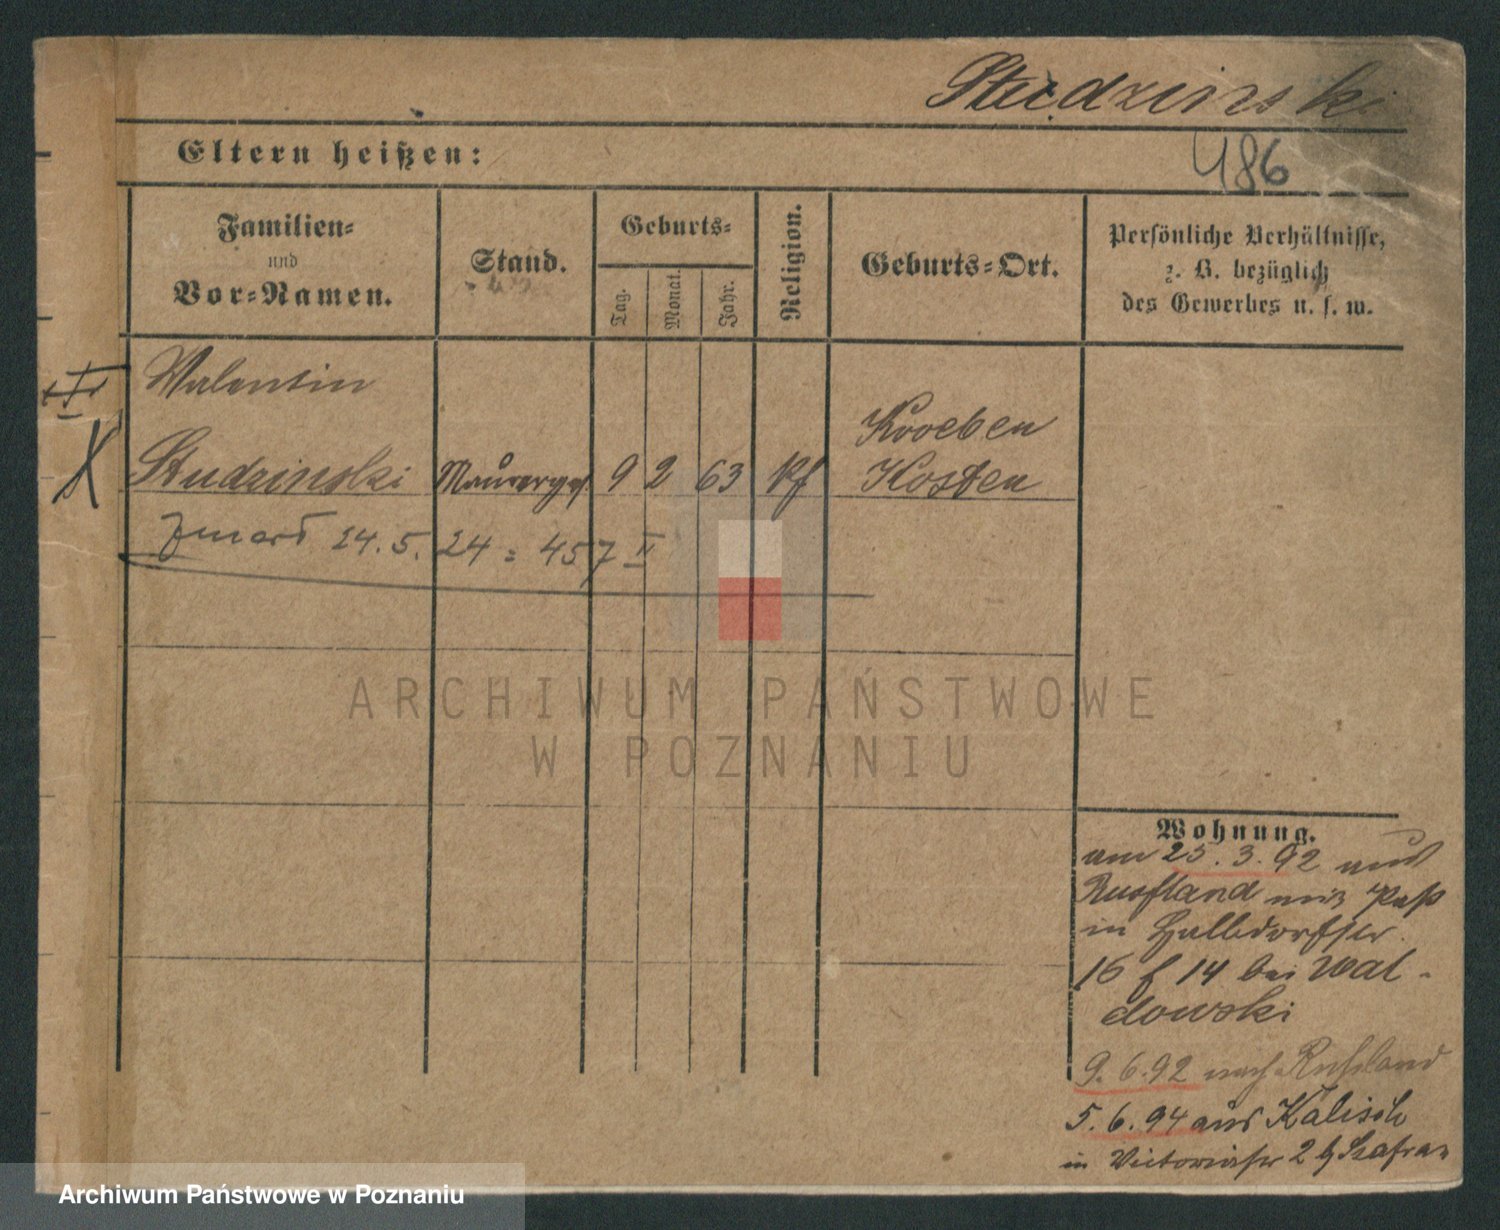 Studzinski
Eltern heißen:
486
Familien-
und
Vor-Namen.
Stand.
Geburts-
Tag.
Monat.
Jahr.
Religion.
Geburts-Ort.
Persönliche Verhältnisse,
z. B. bezüglich
des Gewerbes u. s. w.
II
Valentin
X
Kroeben
Studzinski Maurerges. 9 2 63 kf Kosten
Zmarł 24.5.24 = 457 II
ARCHIWUM PAŃSTWOWE
W POZNANIU
Wohnung.
am 25.3.92 aus
Russland mit Paß
in Halbdorfstr.
16 f 14 bei Wal-
dowski
9.6.92 nach Russland
5.6.94 aus Kalisch
in Victoriastr 2 b Szafran
Archiwum Państwowe w Poznaniu